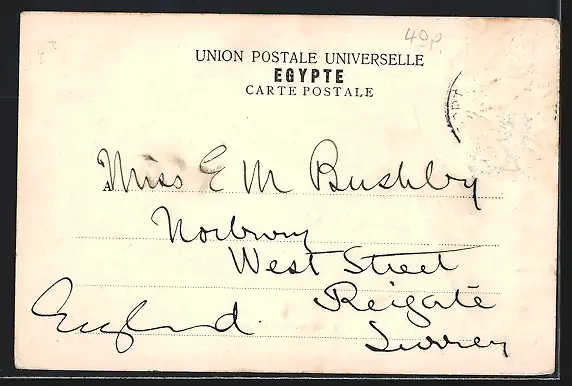 40p.
UNION POSTALE UNIVERSELLE
EGYPTE
CARTE POSTALE
A Miss E M Bushby
Norbury
West Street
Reigate
England. Surrey